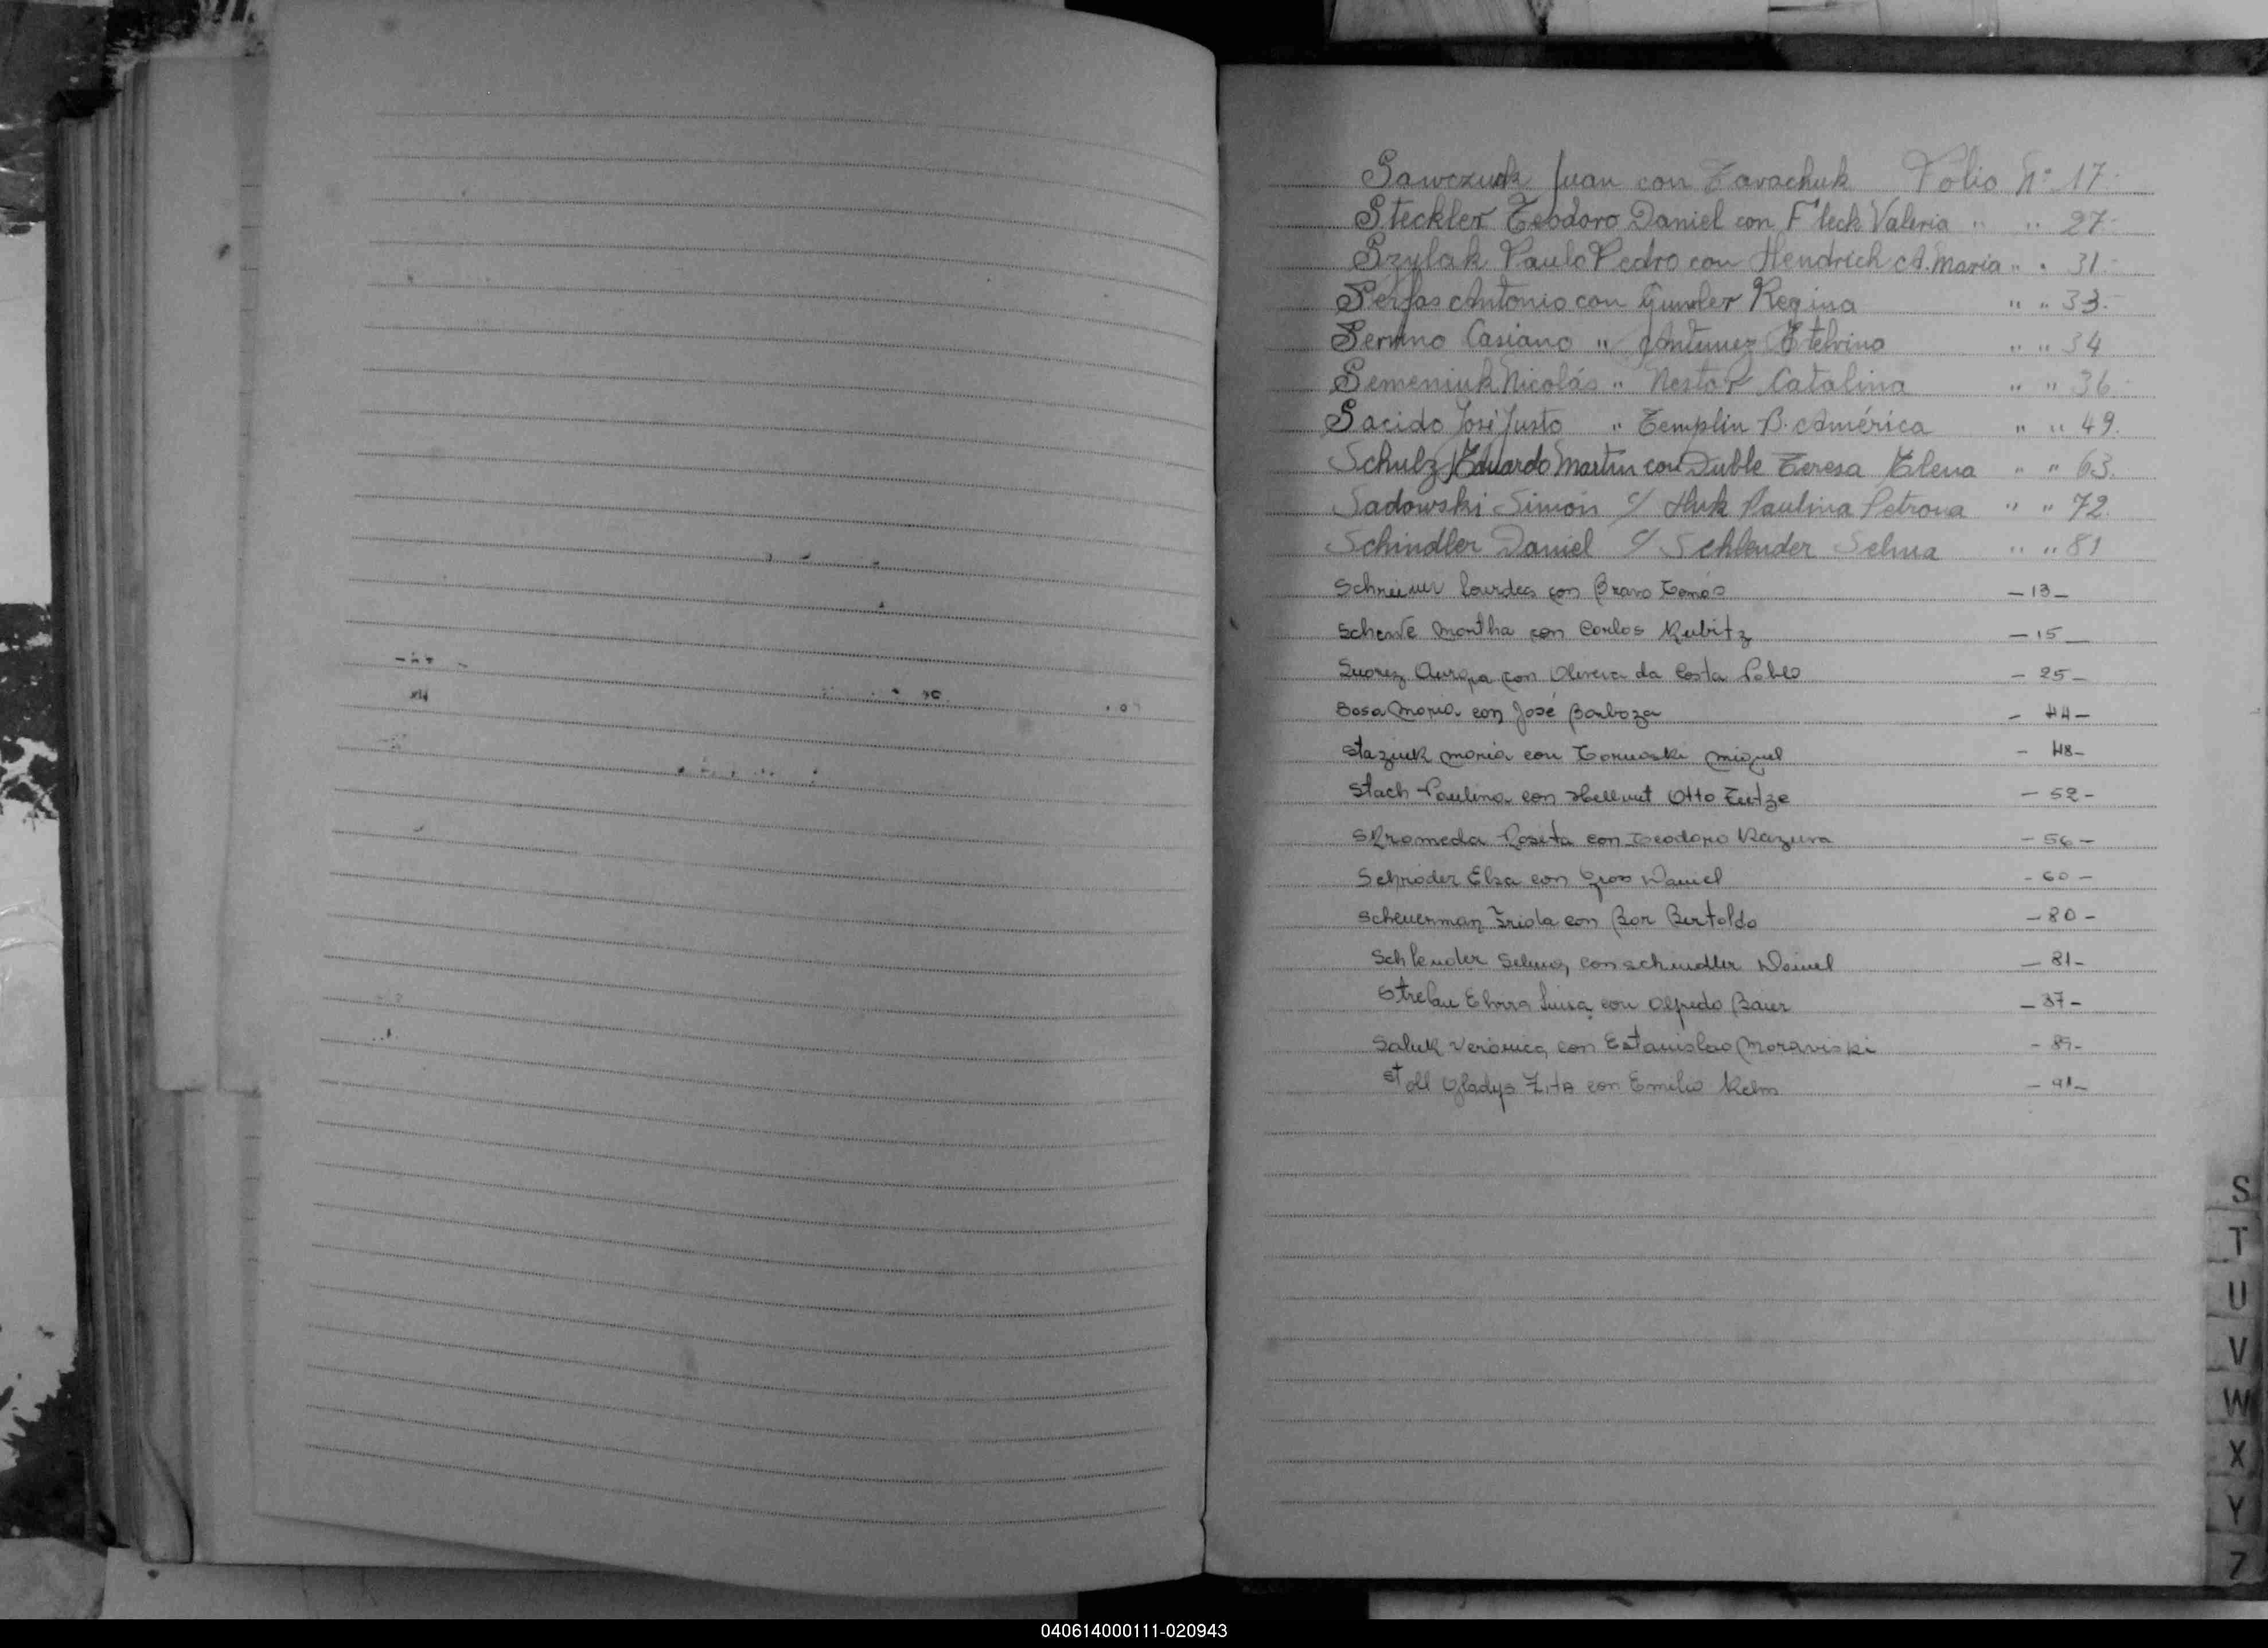 Sawczuk Juan con Tarachuk Folio Nº 17.
Steckler Teodoro Daniel con Fleck Valeria " " 27.
Szylak Paulo Pedro con Hendrich A. Maria " " 31.
Serfas Antonio con Gunder Regina " " 33.
Casiano " Antunez Etelvina " " 34
Semeniuk Nicolás " Nestor Catalina " " 36.
Sacido José Justo " Templin B. América " " 49.
Schulz Eduardo Martin con Duble Teresa Elena " " 63.
Sadowski Simón c/ Huk Paulina Petrona " " 72.
Schindler Daniel c/ Schlender Selma " " 81
Schreiner Lourdes con Bravo Tomás – 13 –
Martha con Carlos Kubitz – 15 –
Suarez con Oliveira da Costa Pablo – 25 –
Sosa Maria con José Barboza – 44 –
Staziuk Maria con Miguel – 48 –
Stach Paulina con Hellmut Otto – 52 –
Skromeda Rosita con Teodoro Kazura – 56 –
Schroder Elsa con Gross Daniel – 60 –
Scheuerman Frida con Bor Bertoldo – 80 –
Schlender Selma con Schindler Daniel – 81 –
Strelau Elvira Luisa con Alfredo Bauer – 87 –
Saluk Veronica con Estanislao Moraviski – 89 –
Stoll Gladys Zita con Emilio Kelm – 91 –
S
T
U
V
W
X
Y
Z
040614000111-020943